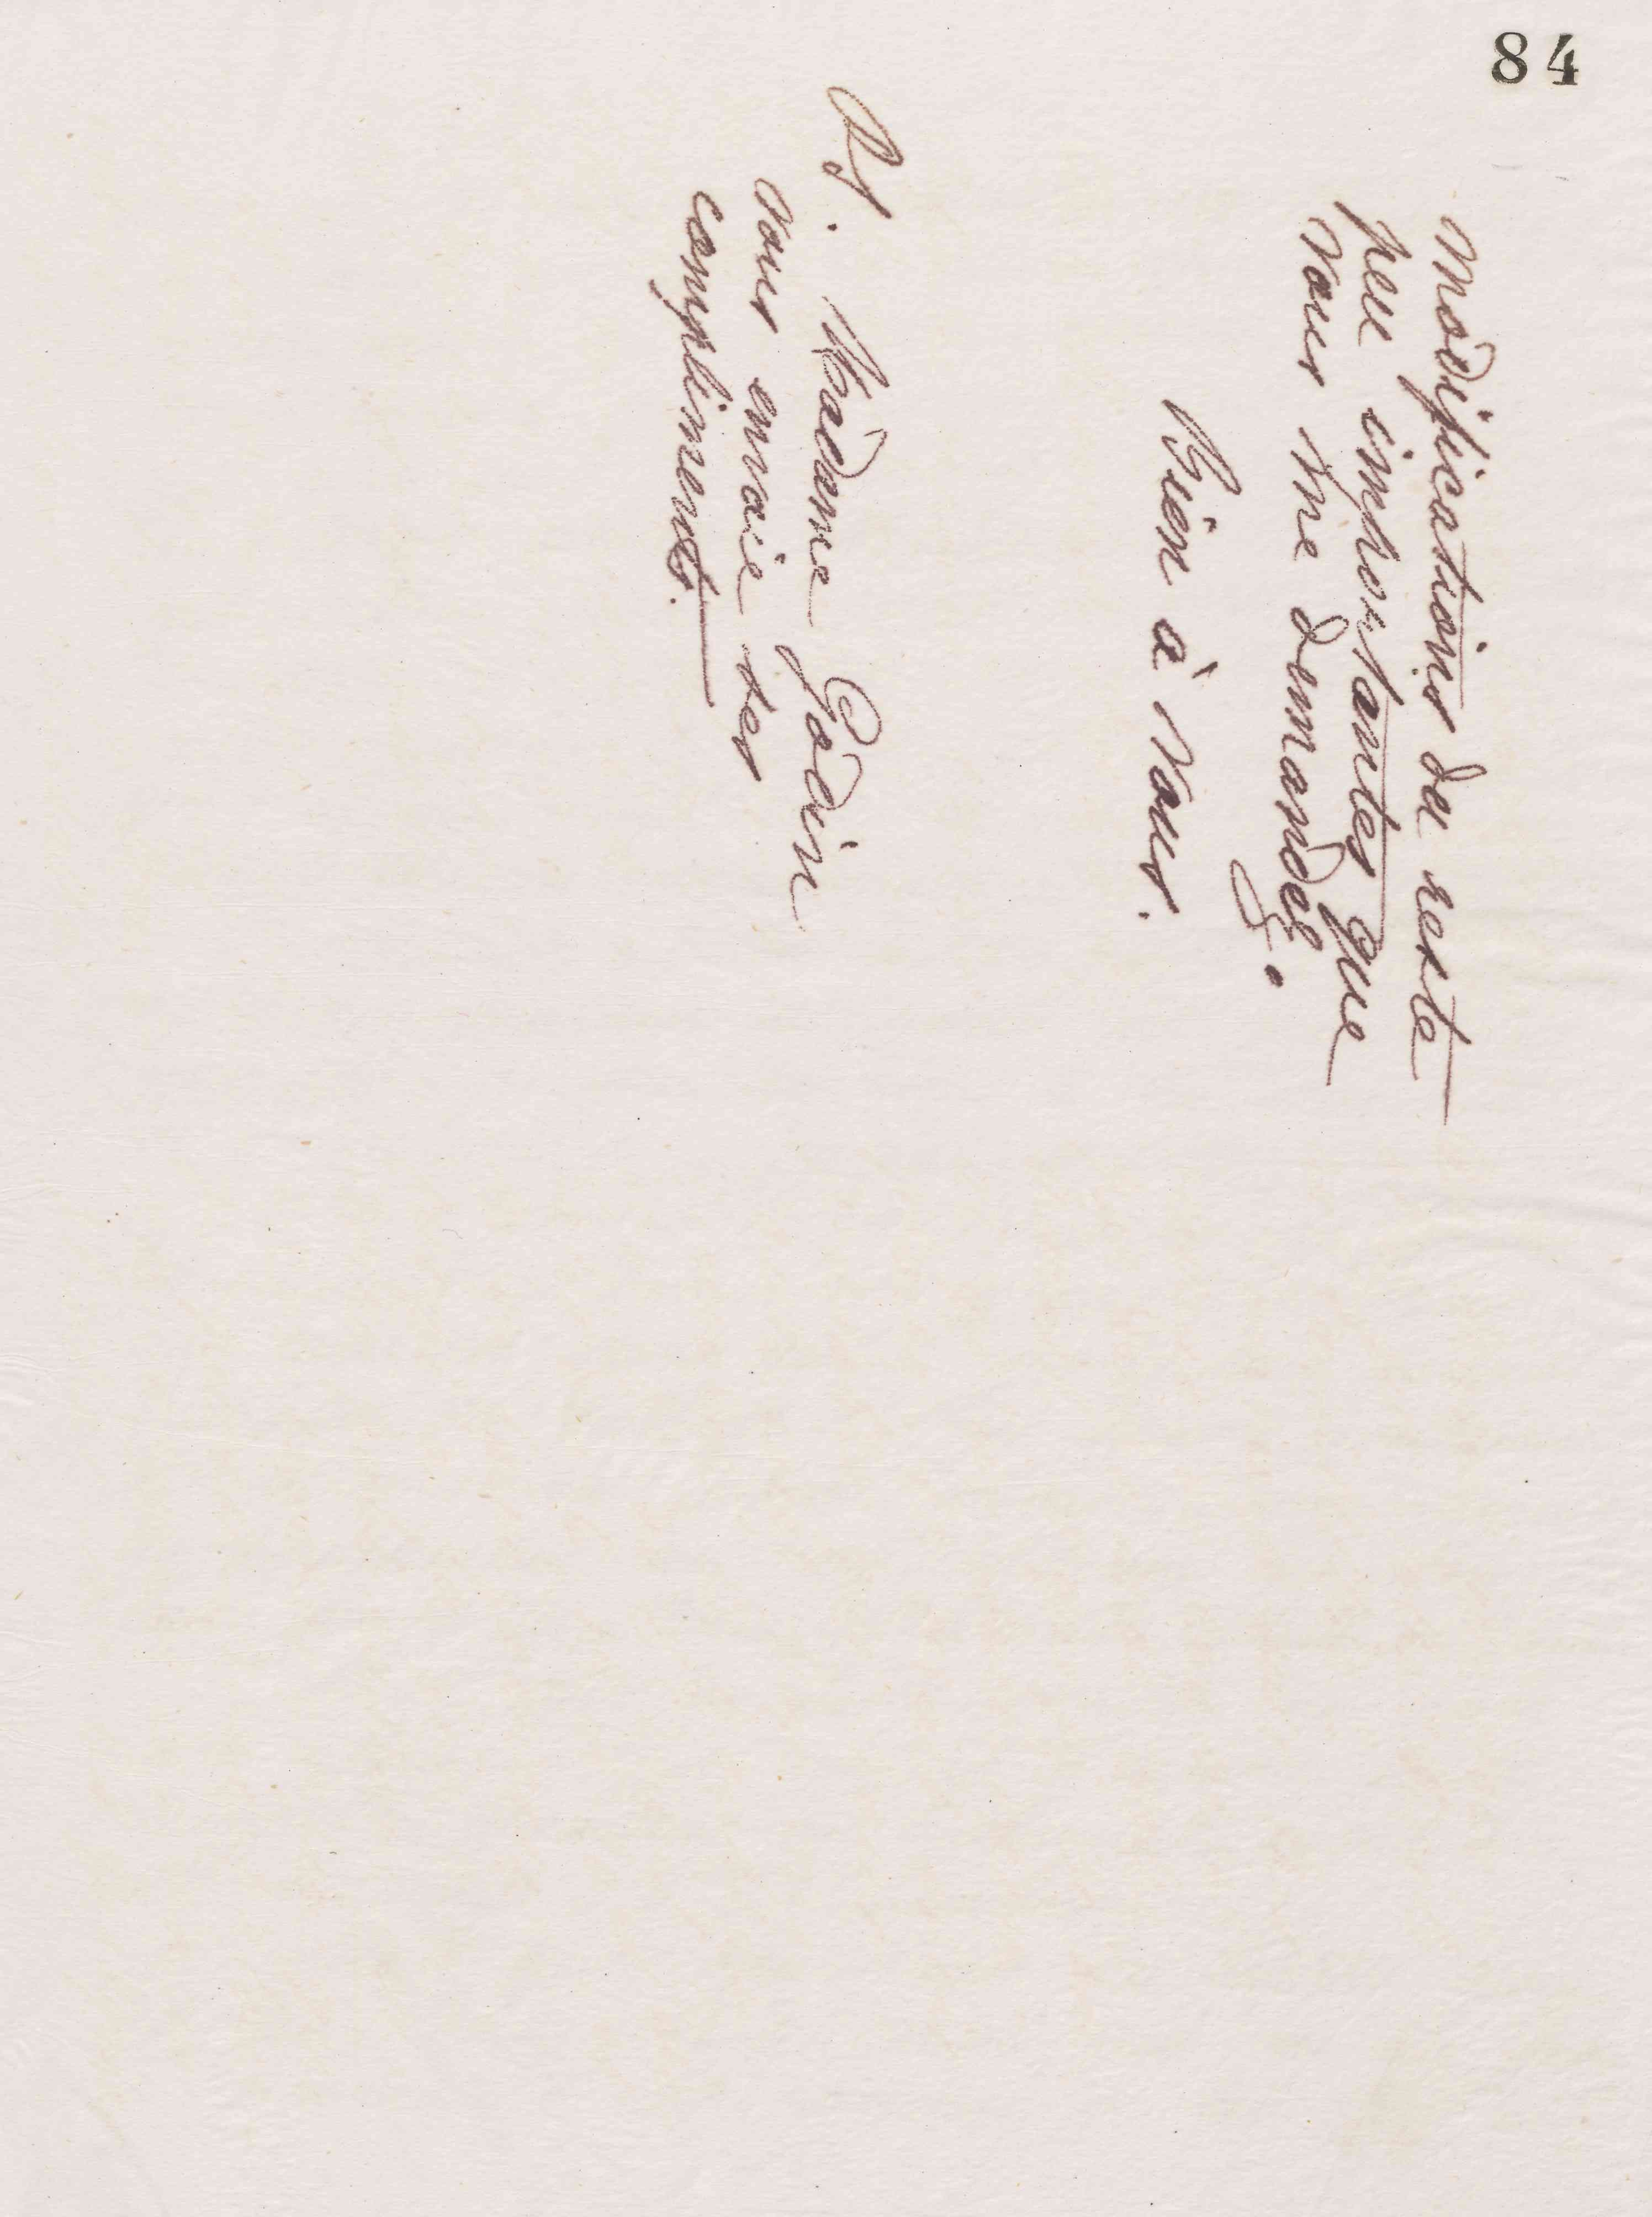 84
modifications du reste
peu importantes que
vous me demandez.
Bien à vous.
Madame Godin
vous envoie ses
compliments.